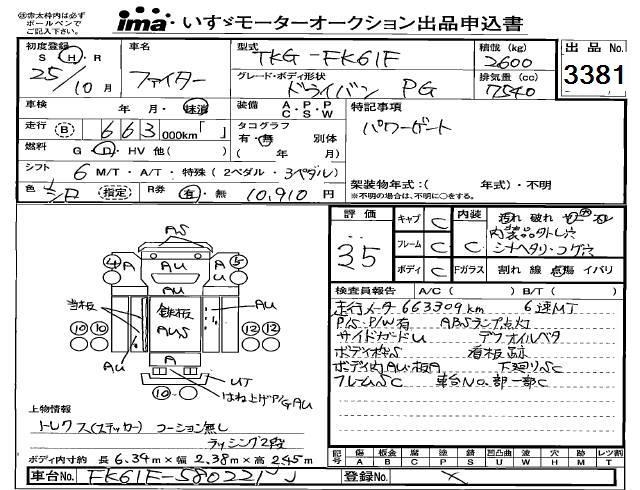 ㊟赤太枠内は必ず
ボールペンで
ご記入下さい。
ima いすゞモーターオークション出品申込書
初度登録 S H・R 25/10月
車名 ファイター
型式 TKG-FK61F
積載(kg) 2600
出品No. 3381
グレード・ボディ形状 ドライバン PG
排気量(cc) 7540
車検 年 月・抹消
装備 A・P・P C・S・W
特記事項
パワーゲート
走行 B 663 000km「 」
タコグラフ 有・無 別体
( 年 月)
燃料 G D・HV 他( )
シフト 6 M/T・A/T・特殊(2ペダル・3ペダル)
架装物年式:( 年式)・不明
※不明の場合は、不明に○をする。
色 シロ (指定) R券 有・無 10,910円
評価 3.5
キャブ C
フレーム C
ボディ C
内装 C
汚れ 破れ
内装品外レ穴
シナヘタリ・コゲ穴
Fガラス 割れ 線 点傷 イバリ
検査員報告 A/C( ) B/T( )
走行メータ 663309km 6速MT
P/S・P/W有 ABSランプ点灯
サイドガードU デフオイルベタ
ボディ枠S 看板跡
ボディ内AU・板A 下廻りSC
フレームSC 車台No.部一部C
AS
④ A AU A ⑤
AU
当板 鉄板 AUS AU
⑩ ⑩ ⑫ ⑫
AU A
UT
はね上ゲP/G AU
⑩
上物情報
トレクス(ステッカー) コーション無し
ラッシング2段
ボディ内寸約 長 6.34m×幅 2.38m×高 2.45m
記号 傷 A 板金 B 腐 C 塗 P 錆 S 凹凸曲 U 波 W 穴 H 跡 M レツ割 T
車台No. FK61F-580221
登録No. ×